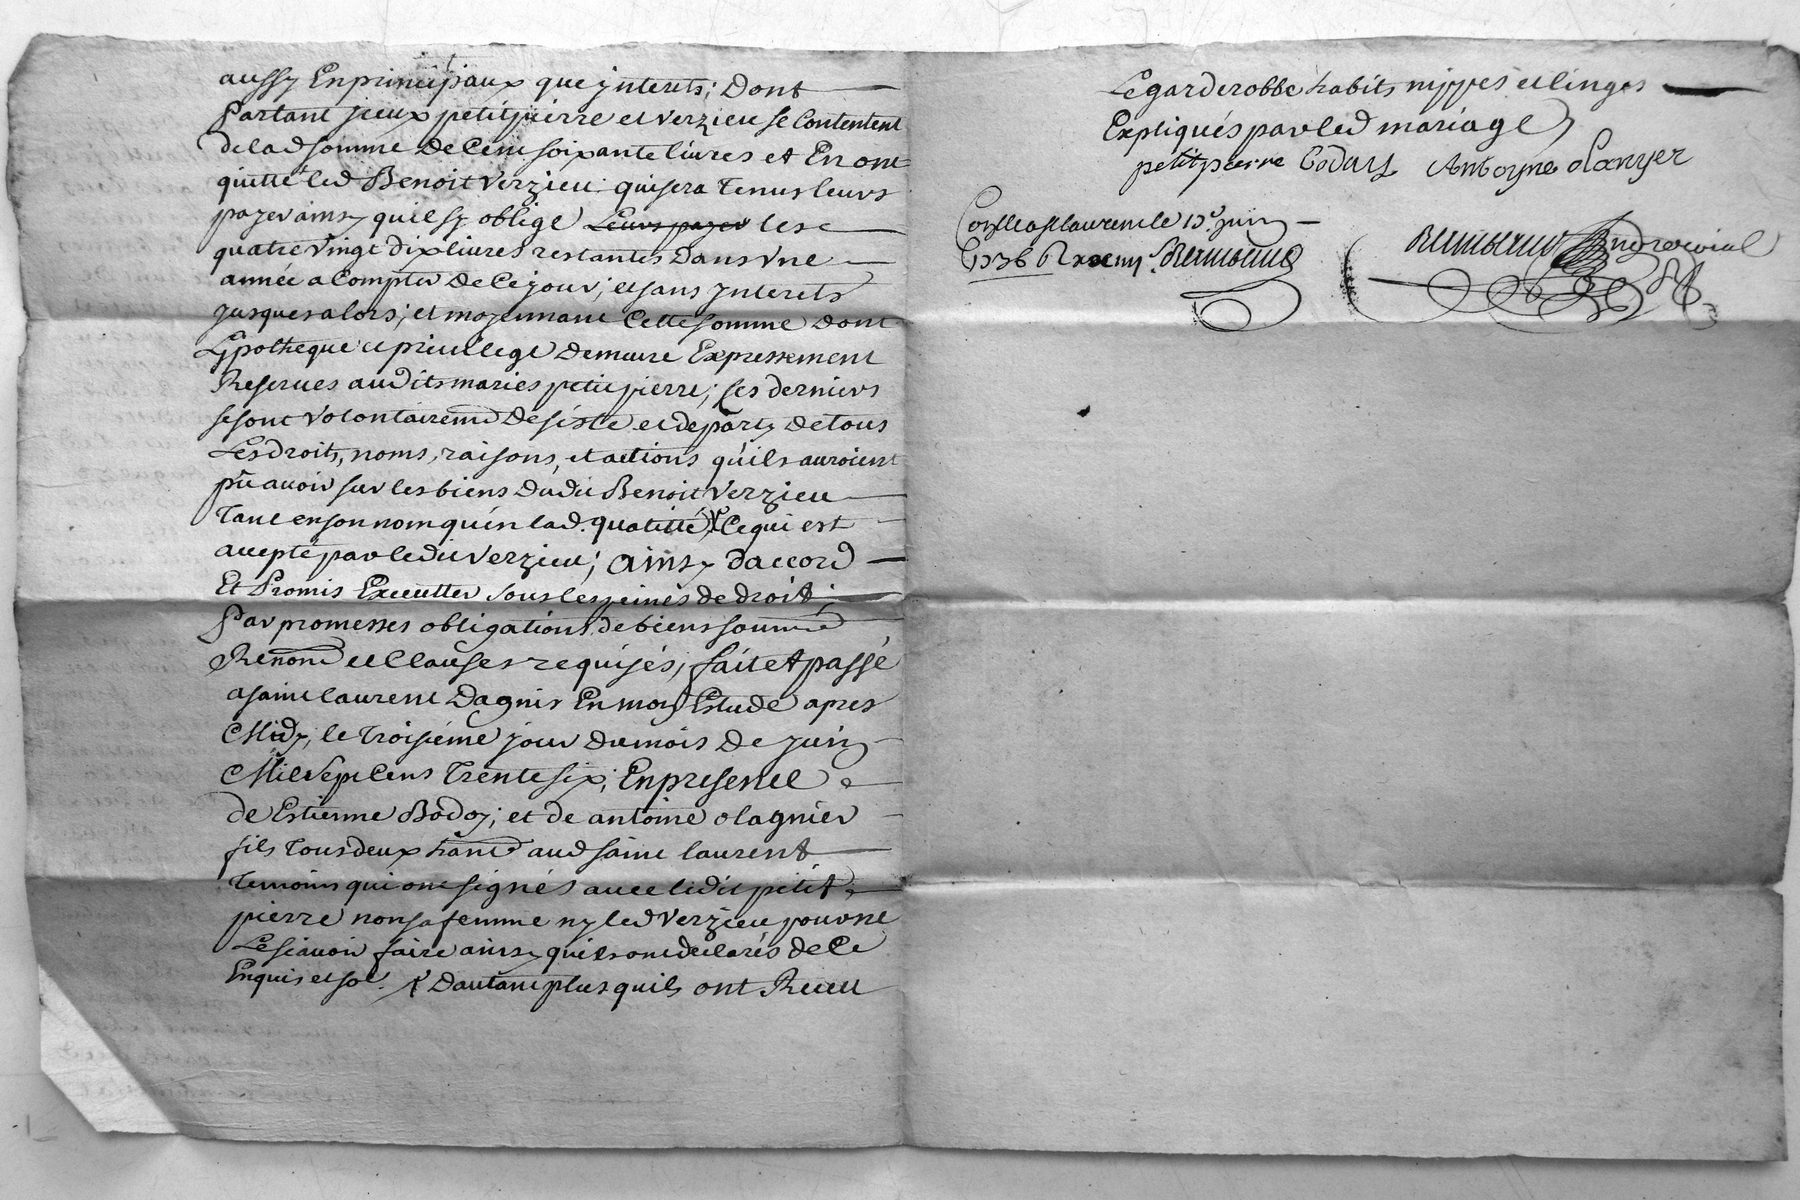 aussy En principaux que jnterets; Dont
Partant jceux petitpierre et verzieu se Contentent
de lad somme de Cent soixante livres et En ont
quitté led Benoit Verzieu; qui sera Tenu leurs
payer ainsy qu'il sy oblige Leurs payer les
quatre vingt dix livres restantes Dans Vne
année a Compter de Ce jour; et sans jnterets
jusques alors; et moyennant Cette somme dont
L'ypotheque et priuilege demeure Expressement
Reserues audits maries petitpierre; ses derniers
se sont volontairemt desisté et departy de tous
Les droits, noms, raisons, et actions qu'ils auroient
pû auoir sur les biens dudit Benoit Verzieu
Tant en son nom qu'en lad. qualitté Ce qui est
accepté par ledit Verzieu; ainsy d'accord
Et Promis Executter sous les peines de droit;
Par promesses obligations de biens soumis
Renonc et Clauses requises; fait et passé
a saint laurent Dagnis En mon Estude apres
Midy, le Troisiéme jour du mois de juin
Mil sept Cens Trente six; En presence
de Estienne Bodoy; et de antoine olagnier
fils Tous deux hant aud saint laurent
Temoins qui ont signés auec ledit petit
pierre non sa femme ny led Verzieu pour ne
Le sçauoir faire ainsy qu'ils ont declarés de Ce
Enquis et so. Dautant plus qu'ils ont Receu
Le garderobbe habits nippes et linges
Expliqués par led mariage
petitpierre Boduy Antoyne olanyer
Conlle a st laurent le 13e juin
1736 R Reimbaud
Reimbaud